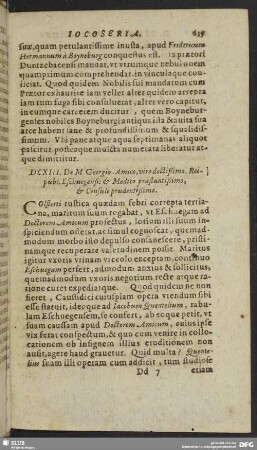 IOCOSERIA. 635
suæ, quam petulantissime inusta, apud Fridericum
Hermannum à Boyneburg conquestus est. Is prætori
Duntzebacensi mandat, vt vtrumque nebulonem
quamprimum comprehendat, in vinculaque con-
iiciat. Quod quidem Nobilis sui mandatum cum
Prætor exhaurire iam vellet alter quidem arrepta
iam tum fuga sibi consuleuat, alter verò capitur,
in eumque carcerem ducitur, quem Boyneburgenses
nobiles Boyneburgi antiqua ista & auita sua
arce habent sane & profundissimum & squalidis-
simum. Vbi pane atque aqua septimanas aliquot
pascitur, posteaque mulcta numerata liberatur at-
que dimittitur.
DCXIII. De M Georgio Amico, viro doctissimo, Rei-
publ. Eschuegensis & Medico præstantissimo,
& Consule prudentissimo.
COsterti rustica quædam febri correpta tertia-
na, maritum suum rogabat, vt Eschuegam ad
Doctorem Amicum profectus, lotium illi suum in-
spiciendum ostentat, ac simul cognoscat, quemad-
modum morbo isto depulso consanescere, pristi-
namque recuperare valetudinem possit. Maritus
igitur vxoris vrinam vitreolo exceptam, continuo
Eschuegam perfert, admodum anxius & sollicitus,
quemadmodum vxoris negotium recte atque ratio-
ne curet expediatque. Quod quidem ne non
fieret, Causidici cuiuspiam opera vtendum sibi
esse statuit, ideoque ad Iacobum Quentelium, tabu-
lam Eschuegensem, se confert, ab eoque petit, vt
suam caussam apud Doctorem Amicum, cuius ipse
via ferat conspectum, & quo cum venire in collo-
cationem ob insignem illius eruditionem non
ausit, agere haud grauetur. Quid multa? Quente-
lius suam illi operam cum addicit, tum studiose
Dd 7 etiam
SLUB